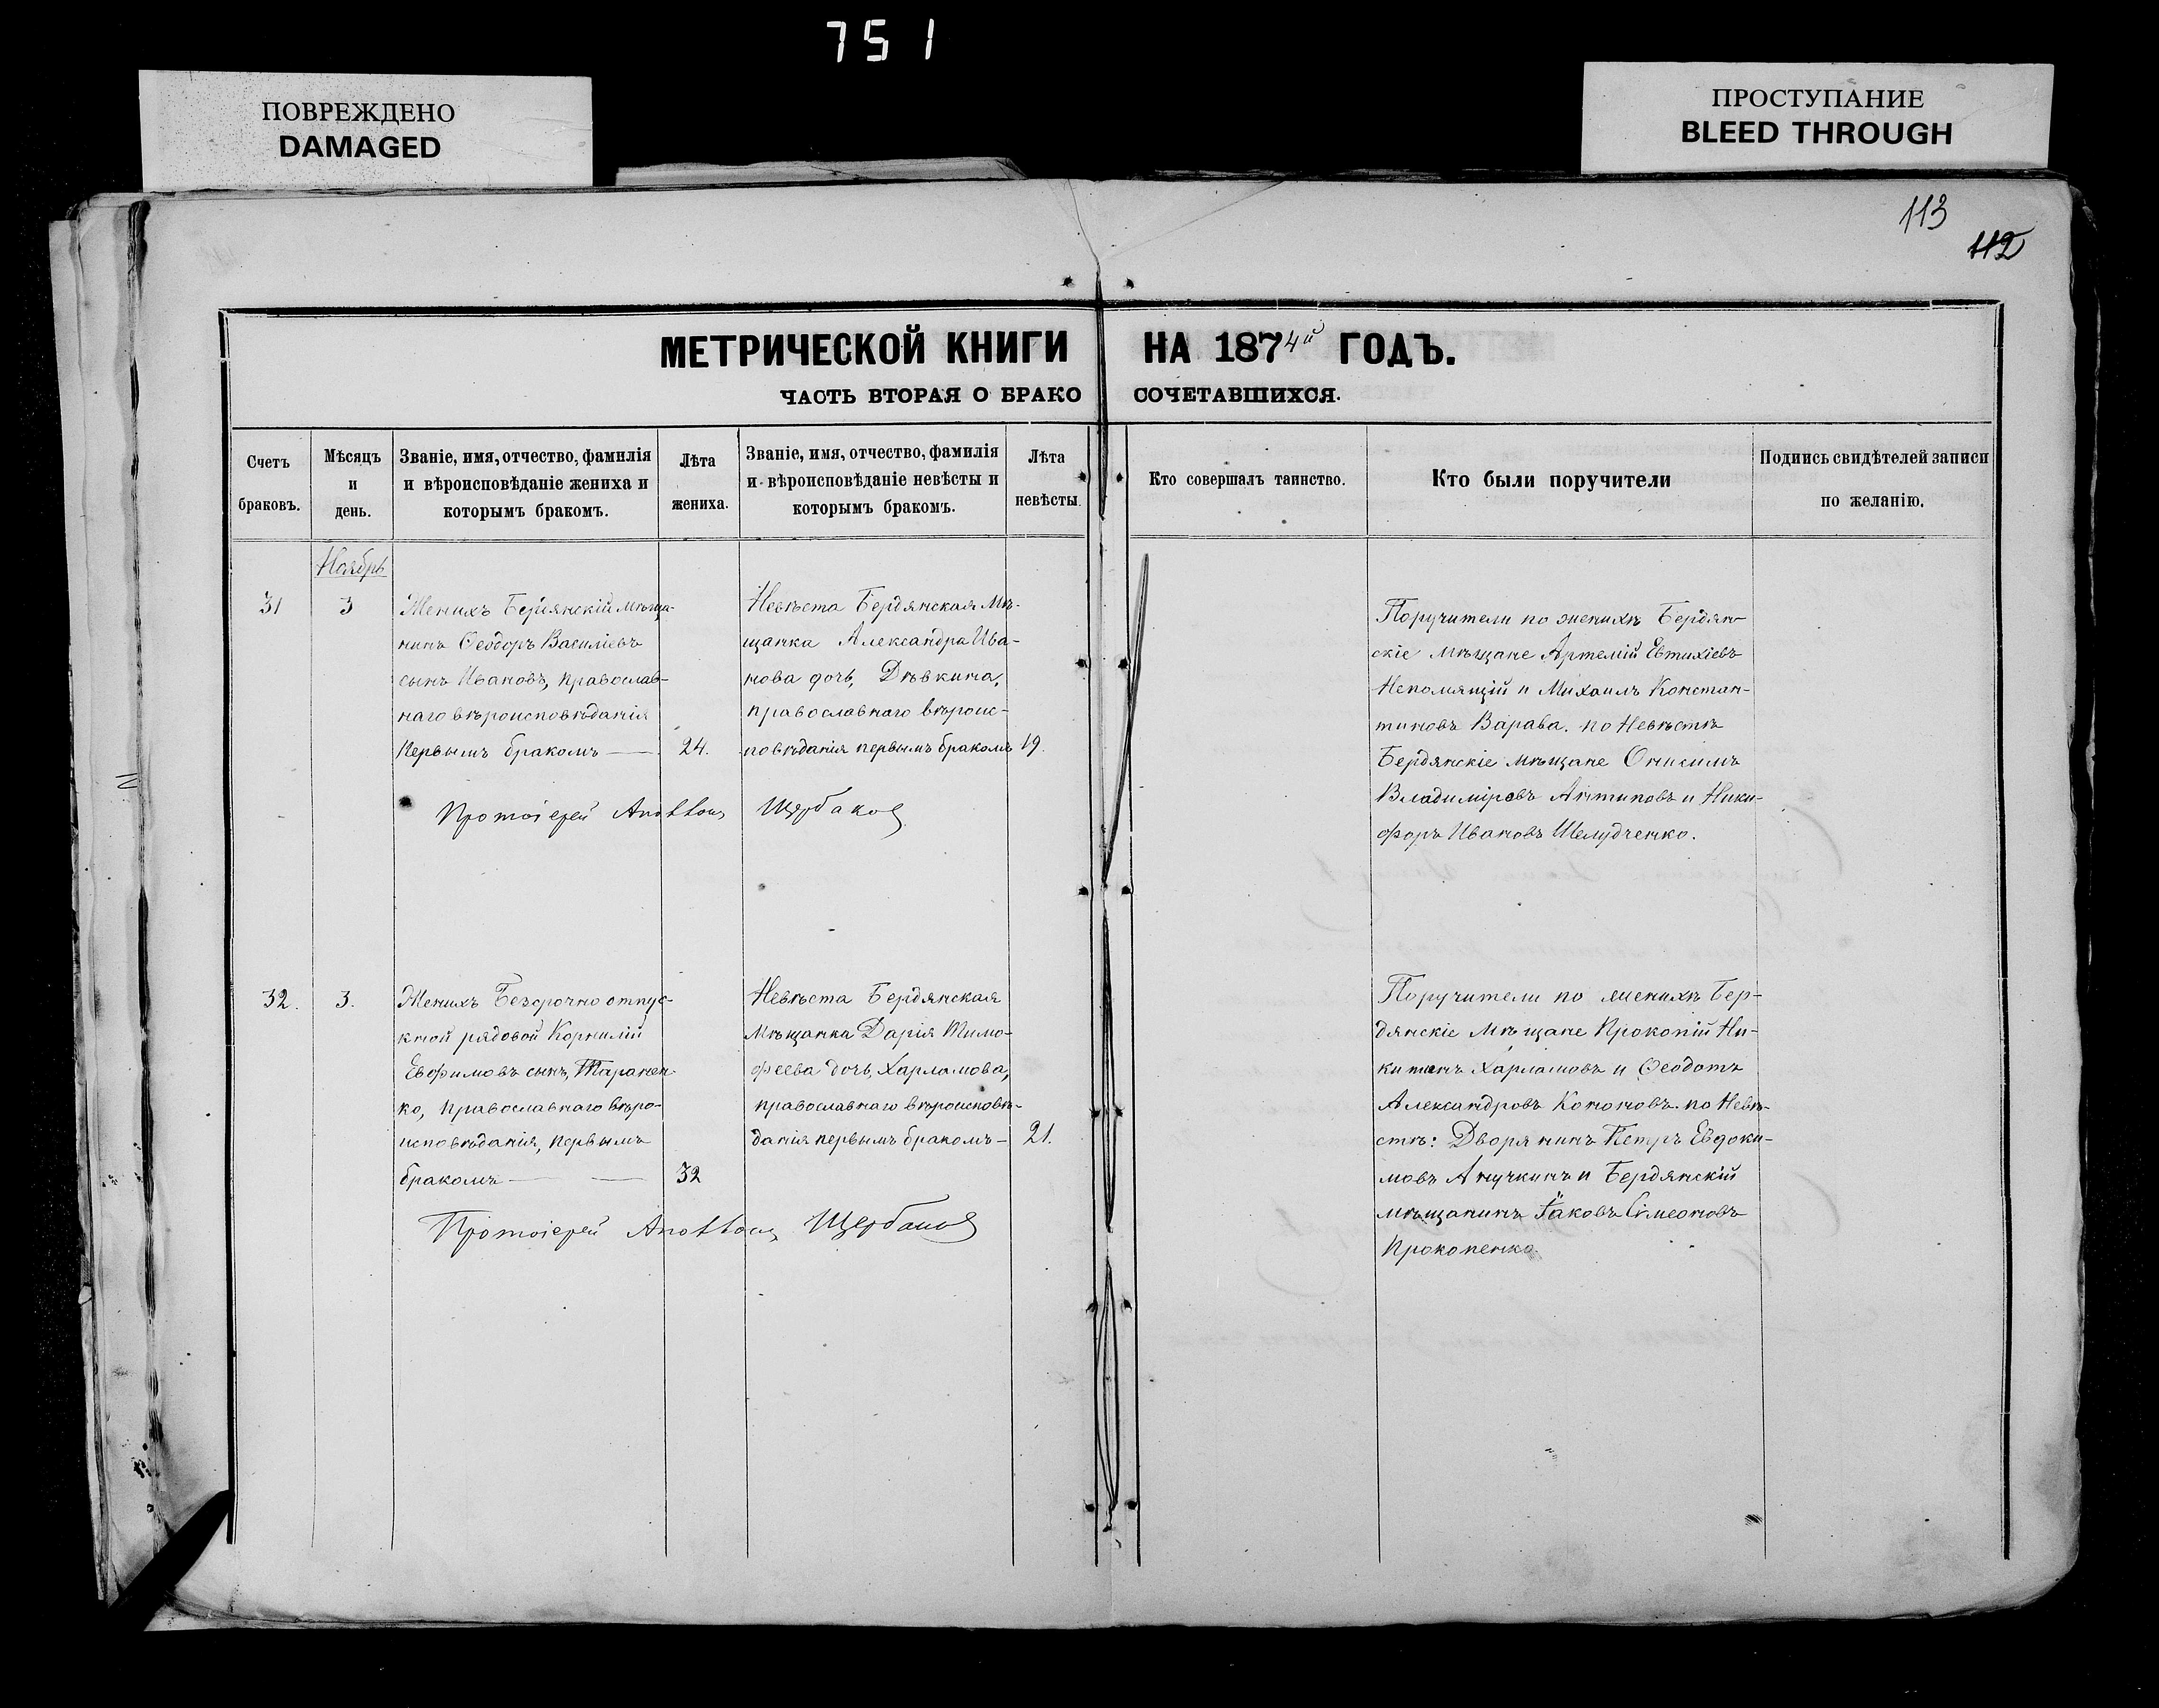 751
ПОВРЕЖДЕНО
DAMAGED
ПРОСТУПАНИЕ
BLEED THROUGH
113
112
МЕТРИЧЕСКОЙ КНИГИ НА 1874й ГОДЪ.
ЧАСТЬ ВТОРАЯ О БРАКОСОЧЕТАВШИХСЯ.
Счетъ
браковъ.
Мѣсяцъ
и
день.
Званіе, имя, отчество, фамилія
и вѣроисповѣданіе жениха и
которымъ бракомъ.
Лѣта
жениха.
Званіе, имя, отчество, фамилія
и вѣроисповѣданіе невѣсты и
которымъ бракомъ.
Лѣта
невѣсты.
Кто совершалъ таинство.
Кто были поручители
Подпись свидѣтелей записи
по желанію.
Ноябрь
31
3
Женихъ Бердянскій мѣща-
нинъ Ѳеодоръ Василіевъ
сынъ Ивановъ, православ-
наго вѣроисповѣданія
первымъ бракомъ —
24.
Невѣста Бердянская мѣ-
щанка Александра Ива-
нова дочь, Дѣвкина,
православнаго вѣроис-
повѣданія первымъ бракомъ
19.
Поручители по женихѣ Бердян-
скіе мѣщане Артемій Евтихіевъ
Непомящій и Михаилъ Констан-
тиновъ Варава. по Невѣстѣ
Бердянскіе мѣщане Онисимъ
Владиміровъ Антиповъ и Ники-
форъ Ивановъ Шелудченко.
Протоіерей Щербаковъ
32.
3.
Женихъ Безсрочно отпус-
кной рядовой Корнилій
Евфимовъ сынъ, Таранен-
ко, православнаго вѣро-
исповѣданія, первымъ
бракомъ —
32
Невѣста Бердянская
мѣщанка Дарія Тимо-
феева дочь, Харламова,
православнаго вѣроисповѣ-
данія первымъ бракомъ —
21.
Поручители по женихѣ Бер-
дянскіе мѣщане Прокопій Ни-
китинъ Харламовъ и Ѳеодотъ
Александровъ Кононовъ. по Невѣ-
стѣ: Дворянинъ Петръ Евдоки-
мовъ Анучкинъ и Бердянскій
мѣщанинъ Іаковъ Сѵмеоновъ
Прокопенко.
Протоіерей Щербаковъ